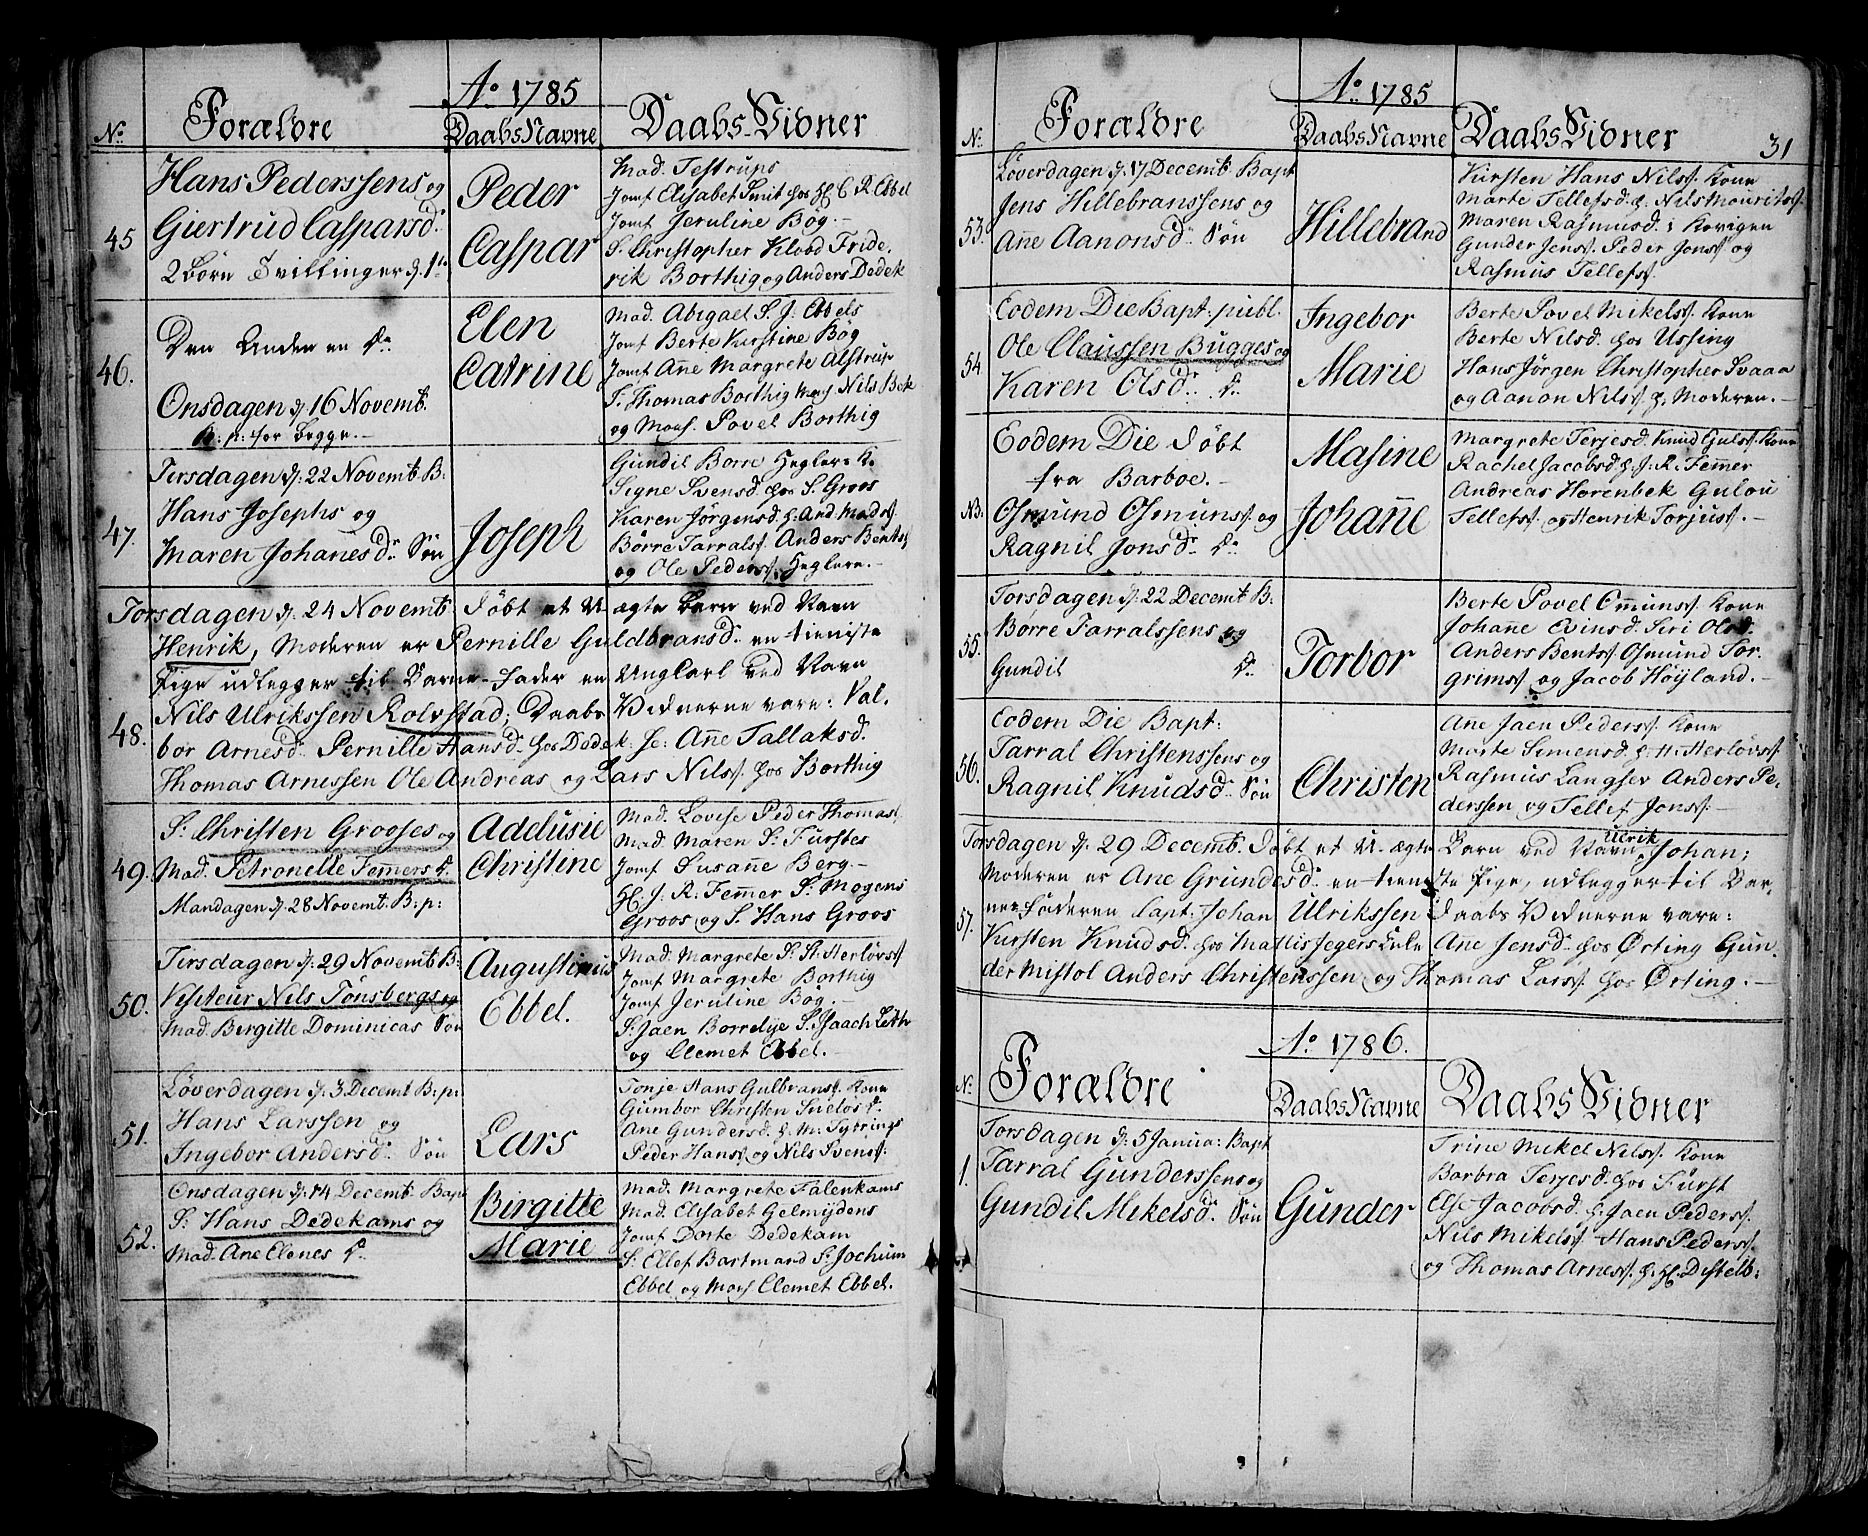 Ao 1785
No Forældre DaabsNavne Daabs-Vidner
45
Hans Pederssens og
Giertrud Casparsd.
2 Børn Tvillinger d. 1te
Peder
Caspar
Mad. Testrups
Jomf Elisabet Smit hos H. C. R. Ebbel
Jomf Jeruline Bøg.-
S. Christopher Klood Fride-
rik Borthig og Anders Dedek
46.
Den Anden en Dr.
Onsdagen d. 16 Novemb.
B: p: for begge.-
Elen
Catrine
Mad. Abigael S. J. Ebbels
Jomf Berte Kirstine Bøg
Jomf Anne Margrete Alstrup
S. Thomas Borthig Mons Nils Bek
og Mons. Povel Borthig
47.
Tirsdagen d. 22 Novemb. B:
Hans Josephs og
Maren Johanesd. Søn
Joseph
Gundil Børre Heglers K.
Signe Svensd. hos S. Groos
Karen Jørgensd. h. And. Mads.
Børre Tarrals. Anders Bents.
og Ole Peders. Heglere.-
48.
Torsdagen d. 24 Novemb. døbt et U-ægte Barn ved Navn
Henrik, Moderen er Pernille Guldbransd. en tieniste
Pige udlegger til Barne-Fader en Ungkarl ved Navn
Nils Ulrikssen Rolvstad; Daabs Vidnerne vare: Val-
bor Arnesd. Pernille Hansd. hos Dedek: Anne Tallaksd.
Thomas Arnessen Ole Andreas og Lars Nils. hos Borthig
49.
S. Christen Grooses og
Mad. Petronelle Femers D.
Mandagen d. 28 Novemb. B: p:
Adelusie
Christine
Mad. Lovise Peder Thomas.
Mad. Maren S. Fürstes
Jomf Susanne Berg.-
H. J. R. Femer S. Mogens
Groos og S. Hans Groos
50.
Tirsdagen d. 29 Novemb. B:
Visiteur Nils Tønsbergs og
Mad. Birgitte Dominicas Søn
Augustinus
Ebbel.
Mad. Margrete S. St. Herløvs.
Jomf Margrete Borthig
Jomf Jeruline Bøg.
S. Jaen Borrelye S. Isaach Leth
og Clemet Ebbel.-
51.
Løverdagen d. 3 Decemb B: p:
Hans Larssen og
Ingebor Andersd. Søn
Lars
Tonje Hans Gulbrans. Kone
Gumbor Christen Snelos D.
Ane Gundersd. h. M. Tybrings
Peder Hans. og Nils Svens.
52.
Onsdagen d. 14 Decemb. Bapt
S. Hans Dedekams og
Mad. Ane Elenes D.
Birgitte
Marie
Mad. Margrete Falenkams
Mad. Elisabet Gelmÿdens
Jomf Dorte Dedekam
S. Ellef Bartman d S. Jochum
Ebbel og Mons Clemet Ebbel.
Ao. 1785
31
No Forældre DaabsNavne Daabs Vidner
53.
Løverdagen d. 17 Decemb. Bapt
Jens Hillebranssens og
Anne Aanonsd. Søn
Hillebrand
Kirsten Hans Nils. Kone
Marte Tellefsd. h. Nils Mourits.
Maren Rasmusd. i Kovigen
Gunder Jens. Peder Jons. og
Rasmus Tellefs.
54
Eodem Die Bapt: publ.
Ole Claussen Bugges og
Karen Olsd. D.
Ingebor
Marie
Berte Povel Mikels. Kone
Berte Nilsd. hos Ussing
Hans Jørgen Christopher Svaaa
og Aanon Nils. h. Moderen.-
NB.
Eodem Die døbt
fra Barboe.-
Osmund Osmuns. og
Ragnil Jonsd. D.
Masine
Johanne
Margrete Terjesd. Knud Guls. Kone
Rachel Jacobsd. h. J. R. Femer
Andreas Horenbek Gulou
Tellefs. og Henrik Torjus.-
55.
Torsdagen d. 22 Decemb. B.
Børre Tarralssens og
Gundil D.
Torbor
Berte Povel Omuns. Kone
Johanne Evinsd. Siri Olsd.
Anders Bents. Osmund Tor-
grims. og Jacob Høyland.-
56.
Eodem Die Bapt:
Tarral Christenssens og
Ragnil Knudsd. Søn
Christen
Ane Jaen Peders. Kone
Marte Simensd. h. H. Herløvs.
Rasmus Langsev Anders Pe-
derssen og Tellef Jons.-
57.
Torsdagen d. 29 Decemb. døbt et U-ægte Barn ved Navn Ulrik Johan;
Moderen er Ane Grundesd. en tieniste Pige, udlegger til Bar-
ne-Faderen Capt. Johan Ulrikssen Daabs Vidnerne vare:
Kirsten Knudsd. hos Mattis Jegers Enke Anne Jensd. hos Ørting Gun-
der Mistol Anders Christenssen og Thomas Lars. hos Ørting.-
Ao 1786.
No Forældre DaabsNavne Daabs Vidner
1.
Torsdagen d. 5 Janua: Bapt
Tarral Gunderssens og
Gundil Mikelsd. Søn
Gunder
Trine Mikel Nils. Kone
Barbra Terjesd. hos Fürst
Else Jacobsd. h. Jaen Peders.
Nils Mikels. Hans Peders.
og Thomas Arnes. h. H. Distelb: